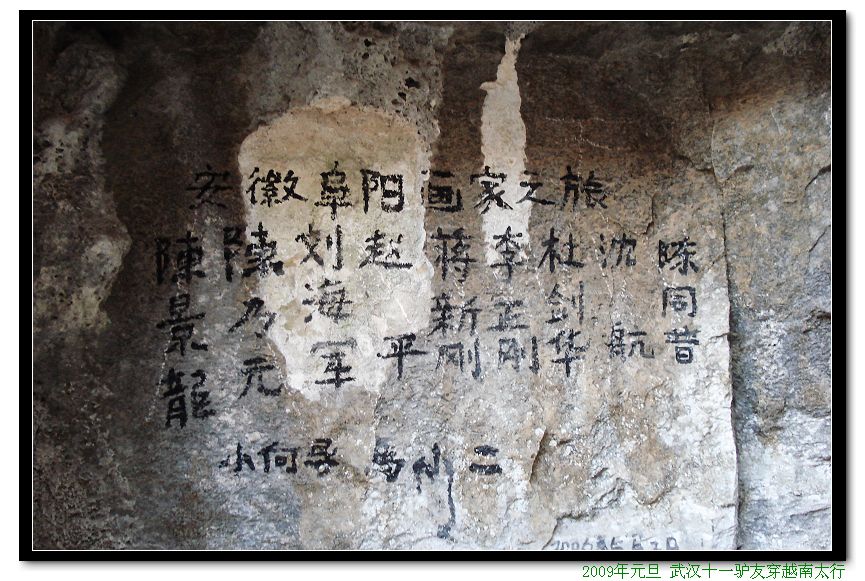 安徽阜阳画家之旅
陳景龍
陳乃元
刘海军
赵平
蒋新刚
李正刚
杜剑华
沈航
陈同昔
小向导 马小二
2009年元旦 武汉十一驴友穿越南太行